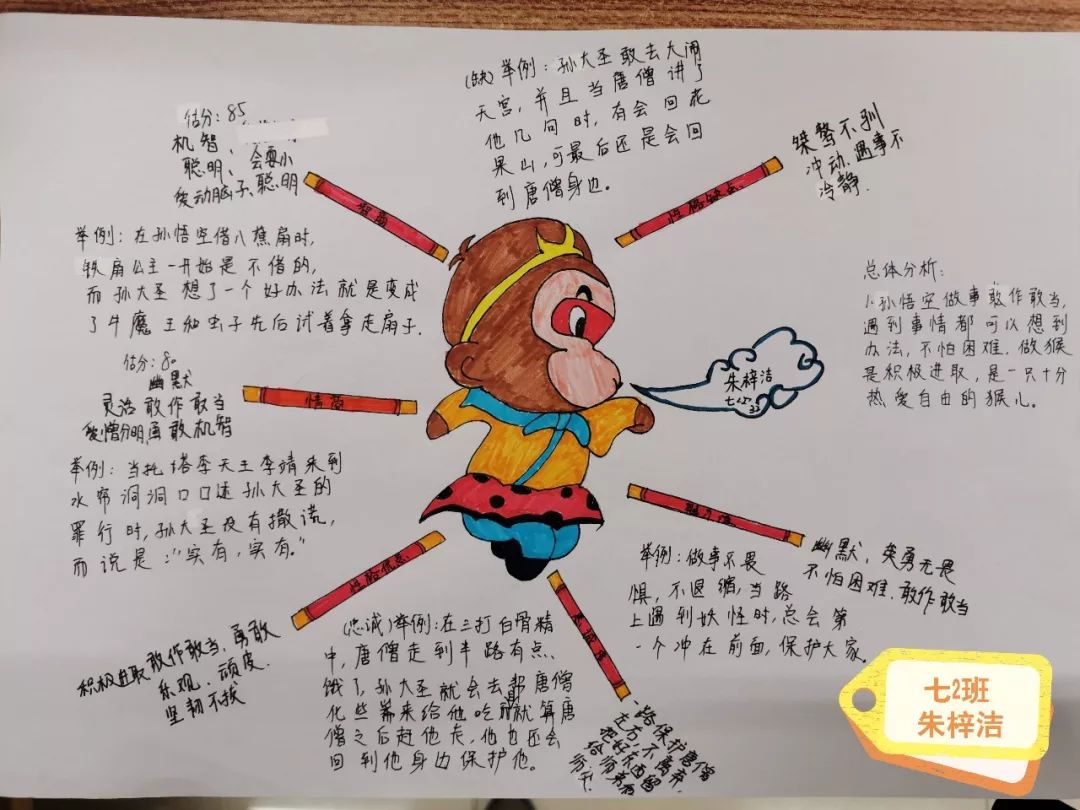 估分：85
机智、
聪明、会耍小
爱动脑子、聪明
智商
举例：在孙悟空借八蕉扇时，
铁扇公主一开始是不借的，
而孙大圣想了一个好办法就是变成
了牛魔王和虫子先后试着拿走扇子.
估分：80
幽默
灵活敢作敢当
爱憎分明勇敢机智
情商
举例：当托塔李天王李靖来到
水帘洞洞口口述孙大圣的
罪行时,孙大圣没有撒谎，
而说是：“实有,实有.”
性格优点
积极进取敢作敢当、勇敢
乐观、顽皮、
坚韧不拔
(忠诚)举例：在三打白骨精
中，唐僧走到半路有点
饿了，孙大圣就会去帮唐僧
化些斋来给他吃就算唐
僧之后赶他走,他也还会
回到他身边保护他。
(缺)举例：孙大圣敢去大闹
天宫，并且当唐僧讲了
他几句时，有会回花
果山,可最后还是会回
到唐僧身边。
性格缺点
桀骜不驯
冲动、遇事不
冷静.
朱梓洁
总体分析：
1.孙悟空做事敢作敢当，
遇到事情都可以想到
办法,不怕困难.做猴
是积极进取,是一只十分
热爱自由的猴儿。
幽默，英勇无畏
不怕困难、敢作敢当
举例：做事不畏
惧，不退缩,当路
上遇到妖怪时,总会第
一个冲在前面,保护大家.
一路保护唐僧
走右，不离弃.
把好东西留
给师弟和
师父
七2班
朱梓洁